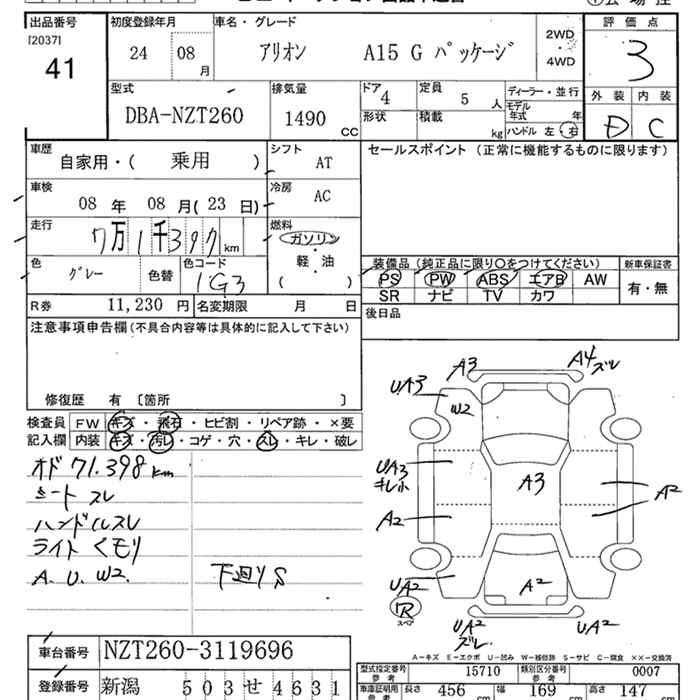 出品番号 初度登録年月 車名・グレード 評価点
[2037]
41 24 08月 アリオン A15 G パッケージ 2WD・4WD 3
型式 排気量 ドア 定員 ディーラー・並行 外装 内装
DBA-NZT260 1490 cc 4 5人 モデル年式 年 D C
形状 積載 kg ハンドル 左・右
車歴 自家用・( 乗用 ) シフト AT セールスポイント (正常に機能するものに限ります)
車検 08年 08月(23日) 冷房 AC
走行 7万1千397km 燃料 ガソリン・軽・油 ( )
色 グレー 色替 色コード 1G3 装備品 (純正品に限り○をつけてください) 新車保証書
PS PW ABS エアB AW 有・無
SR ナビ TV カワ
R券 11,230円 名変期限 月 日 後日品
注意事項申告欄 (不具合内容等は具体的に記入して下さい)
修復歴 有 〔箇所 〕
検査員記入欄 FW キズ・飛石・ヒビ割・リペア跡・×要
内装 キズ・汚レ・コゲ・穴・スレ・キレ・破レ
オド 71.398 km
シート スレ
ハンドルスレ
ライト くモリ
A. U. W2. 下廻りS
A3 A4 ズレ
UA3 W2
UA3 キレ小 A3 A2
A2
UA2 A2
R スペア UA2 ズレ UA2
A−キズ E−エクボ U−凹み W−補修跡 S−サビ C−腐食 ××−交換済
車台番号 NZT260-3119696
型式指定番号 参考 15710 類別区分番号 参考 0007
登録番号 新潟 503 せ 4631
車庫証明用 参考 長さ 456 cm 幅 169 cm 高さ 147 cm